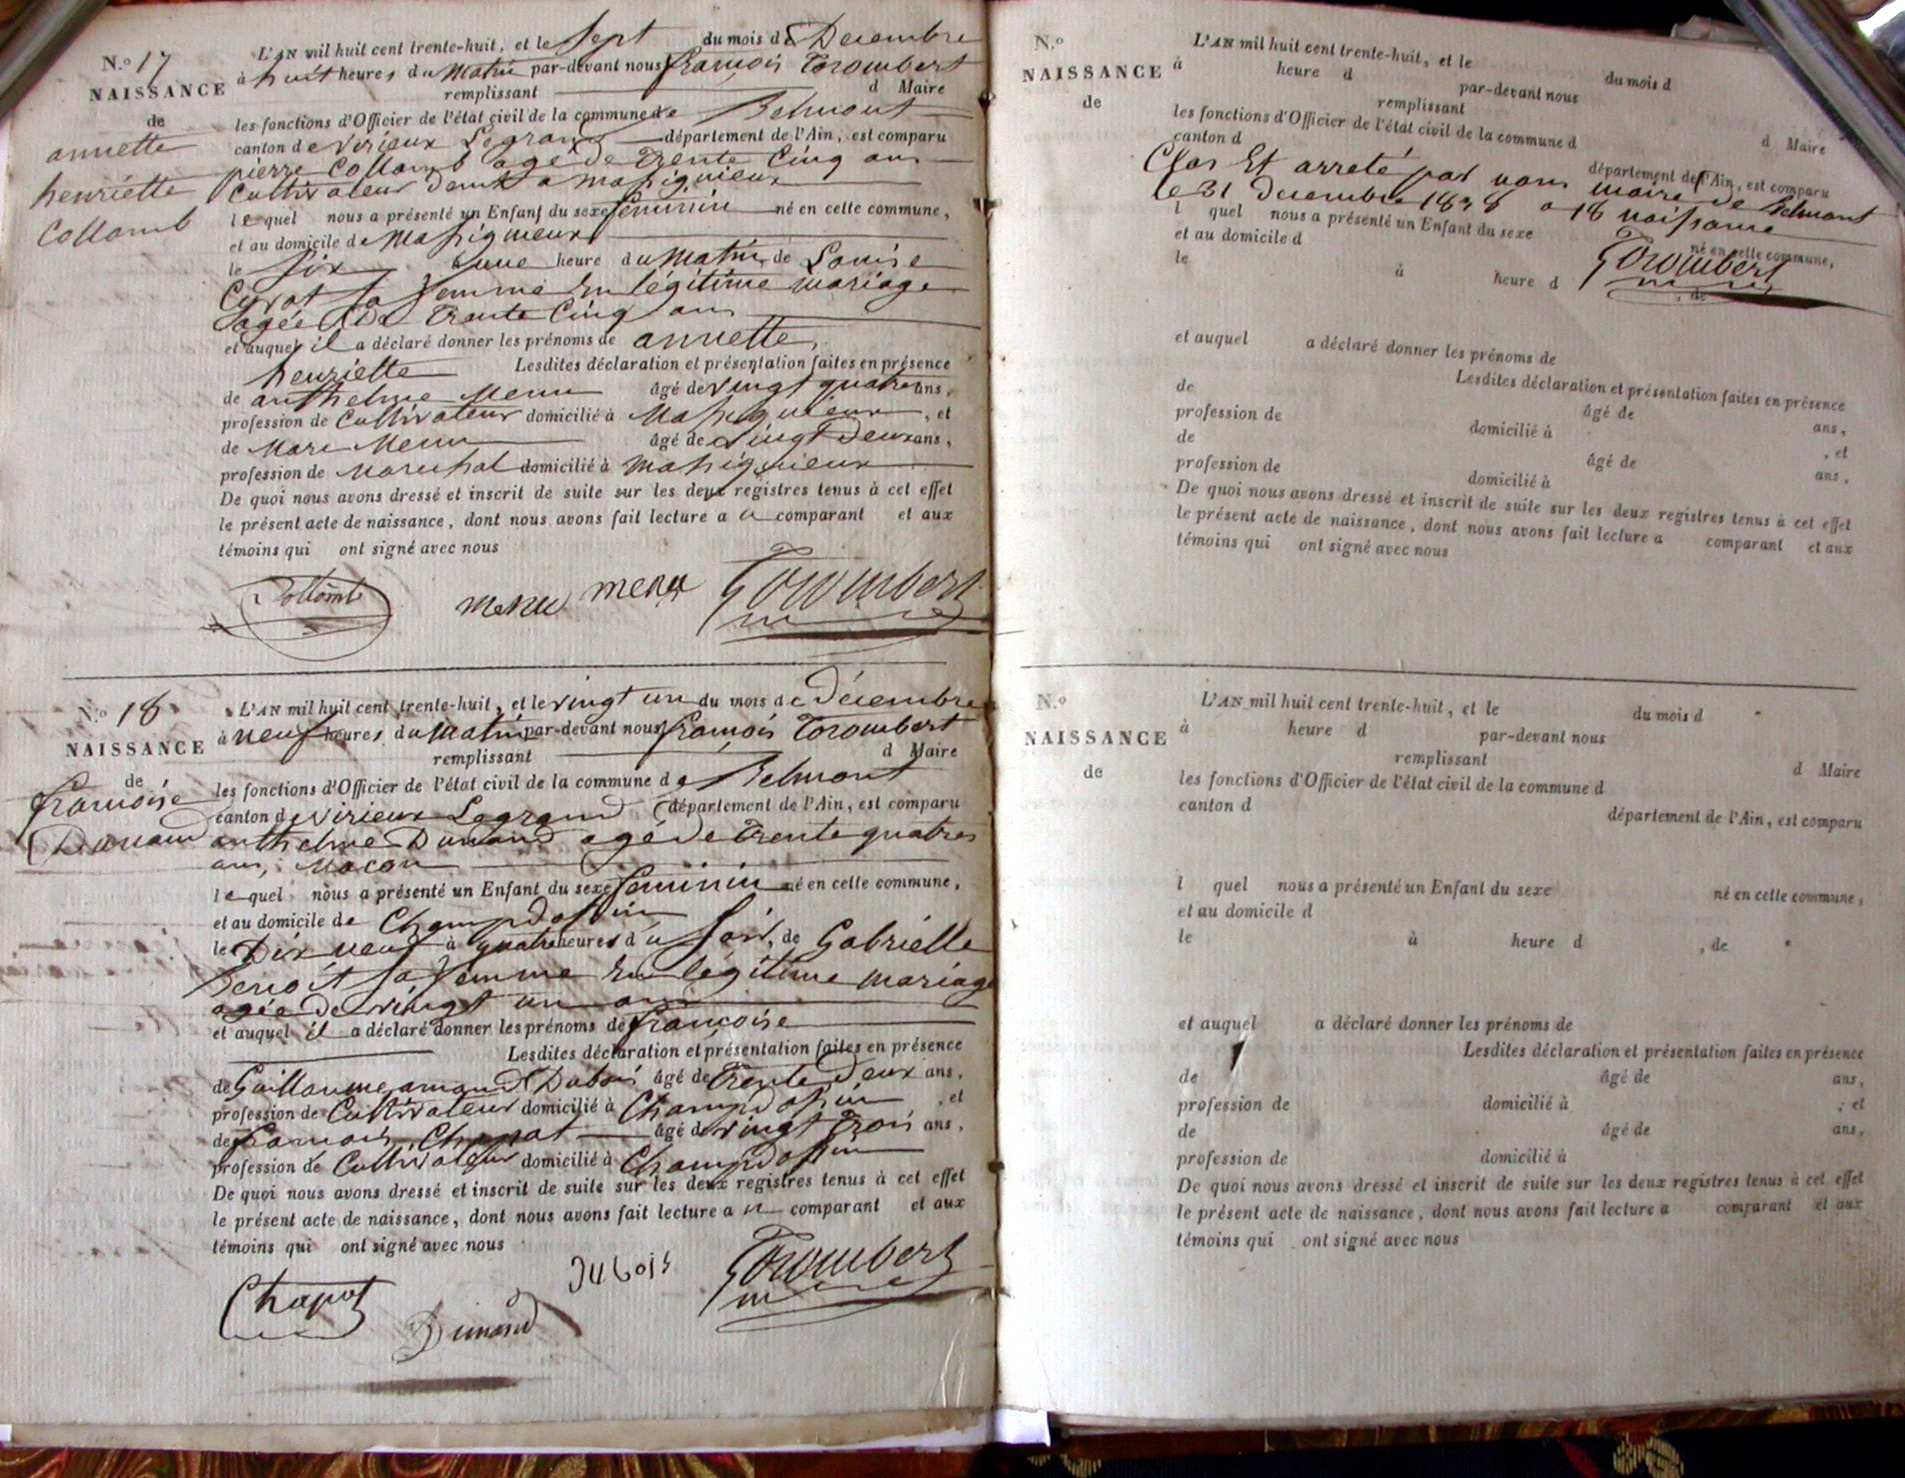 N.o 17
NAISSANCE
de
annette
henriette
Collomb
L'AN mil huit cent trente-huit, et le Sept du mois de Decembre
à huit heures du Matin par-devant nous françois Trombert
remplissant d Maire
les fonctions d'Officier de l'état civil de la commune de Belmont
canton de Virieux Legrand département de l'Ain, est comparu
pierre Collomb agé de Trente Cinq ans
Cultivateur demt a Massignieux
lequel nous a présenté un Enfant du sexe feminin né en cette commune,
et au domicile de Massignieux
le Six à une heure du Matin, de Louise
Cyvot sa femme En légitime mariage
agée de Trente Cinq ans
et auquel il a déclaré donner les prénoms de annette,
henriette Lesdites déclaration et présentation faites en présence
de anthelme Menu âgé de vingt quatre ans,
profession de Cultivateur domicilié à Massignieux, et
de Marc Menu âgé de Vingt Deux ans,
profession de Marechal domicilié à Massignieux
De quoi nous avons dressé et inscrit de suite sur les deux registres tenus à cet effet
le présent acte de naissance, dont nous avons fait lecture a u comparant et aux
témoins qui ont signé avec nous
Collomb menu menu Trombert
N.o 18
NAISSANCE
de
francoise
Dunand
L'AN mil huit cent trente-huit, et le vingt un du mois de décembre
à neuf heures du Matin par-devant nous françois Trombert
remplissant d Maire
les fonctions d'Officier de l'état civil de la commune de Belmont
canton de Virieux Legrand département de l'Ain, est comparu
anthelme Dunand agé de Trente quatre
ans, Macon
lequel nous a présenté un Enfant du sexe feminin né en cette commune,
et au domicile de Champdossin
le Dix neuf à quatre heures du Soir, de Gabrielle
Benoît sa femme En légitime mariage
agée de vingt un ans
et auquel il a déclaré donner les prénoms de françoise
Lesdites déclaration et présentation faites en présence
de Guillaume amand Dubois âgé de Trente Deux ans,
profession de Cultivateur domicilié à Champdossin, et
de francois Chapot âgé de vingt Trois ans,
profession de Cultivateur domicilié à Champdossin
De quoi nous avons dressé et inscrit de suite sur les deux registres tenus à cet effet
le présent acte de naissance, dont nous avons fait lecture a u comparant et aux
témoins qui ont signé avec nous
Chapot Dunand Dubois Trombert
N.o
NAISSANCE
de
L'AN mil huit cent trente-huit, et le du mois d
à heure d par-devant nous
remplissant d Maire
les fonctions d'Officier de l'état civil de la commune d
canton d département de l'Ain, est comparu
Clos Et arreté par nous maire de Belmont
le 31 decembre 1838 a 18 naissance
l quel nous a présenté un Enfant du sexe né en cette commune,
et au domicile d
Trombert
le à heure d , de
et auquel a déclaré donner les prénoms de
Lesdites déclaration et présentation faites en présence
de âgé de ans,
profession de domicilié à , et
de âgé de ans,
profession de domicilié à
De quoi nous avons dressé et inscrit de suite sur les deux registres tenus à cet effet
le présent acte de naissance, dont nous avons fait lecture a comparant et aux
témoins qui ont signé avec nous
N.o
NAISSANCE
de
L'AN mil huit cent trente-huit, et le du mois d
à heure d par-devant nous
remplissant d Maire
les fonctions d'Officier de l'état civil de la commune d
canton d département de l'Ain, est comparu
l quel nous a présenté un Enfant du sexe né en cette commune,
et au domicile d
le à heure d , de
et auquel a déclaré donner les prénoms de
Lesdites déclaration et présentation faites en présence
de âgé de ans,
profession de domicilié à , et
de âgé de ans,
profession de domicilié à
De quoi nous avons dressé et inscrit de suite sur les deux registres tenus à cet effet
le présent acte de naissance, dont nous avons fait lecture a comparant et aux
témoins qui ont signé avec nous